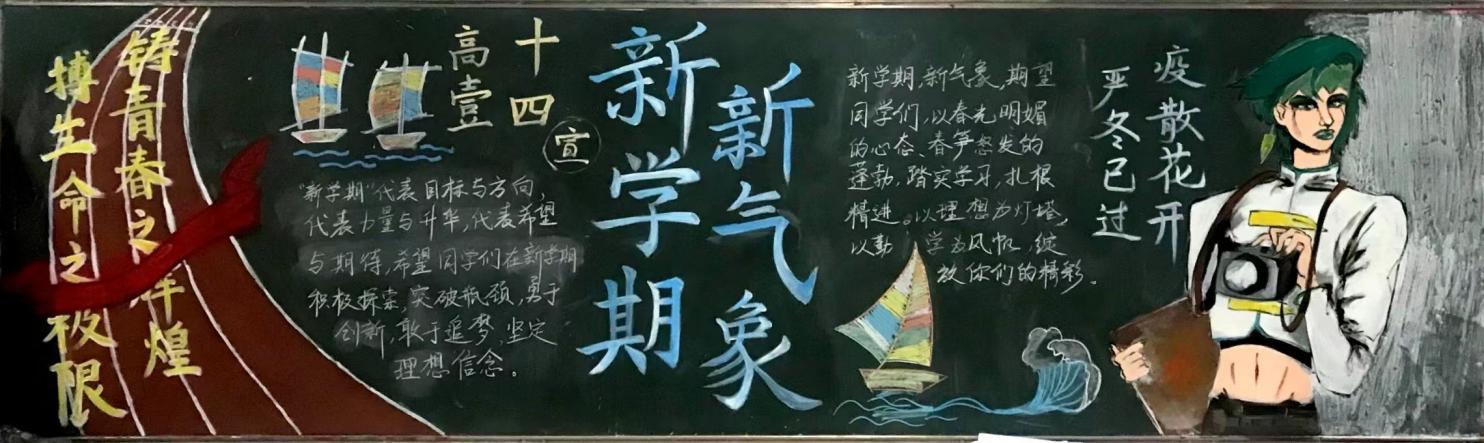 铸青春之辉煌
搏生命之极限
高壹
十四
宣
"新学期"代表目标与方向,
代表力量与升华,代表希望
与期待,希望同学们在新学期
积极探索,突破瓶颈,勇于
创新,敢于追梦,坚定
理想信念。
新学期
新气象
新学期,新气象,期望
同学们,以春光明媚
的心态、春笋怒发的
蓬勃,踏实学习,扎根
精进。以理想为灯塔,
以勤 学为风帆,绽
放你们的精彩。
疫散花开
严冬已过